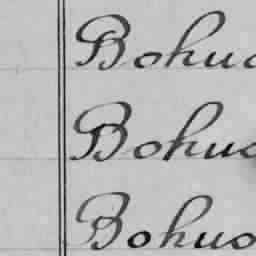 Bohus
Bohus
Bohus